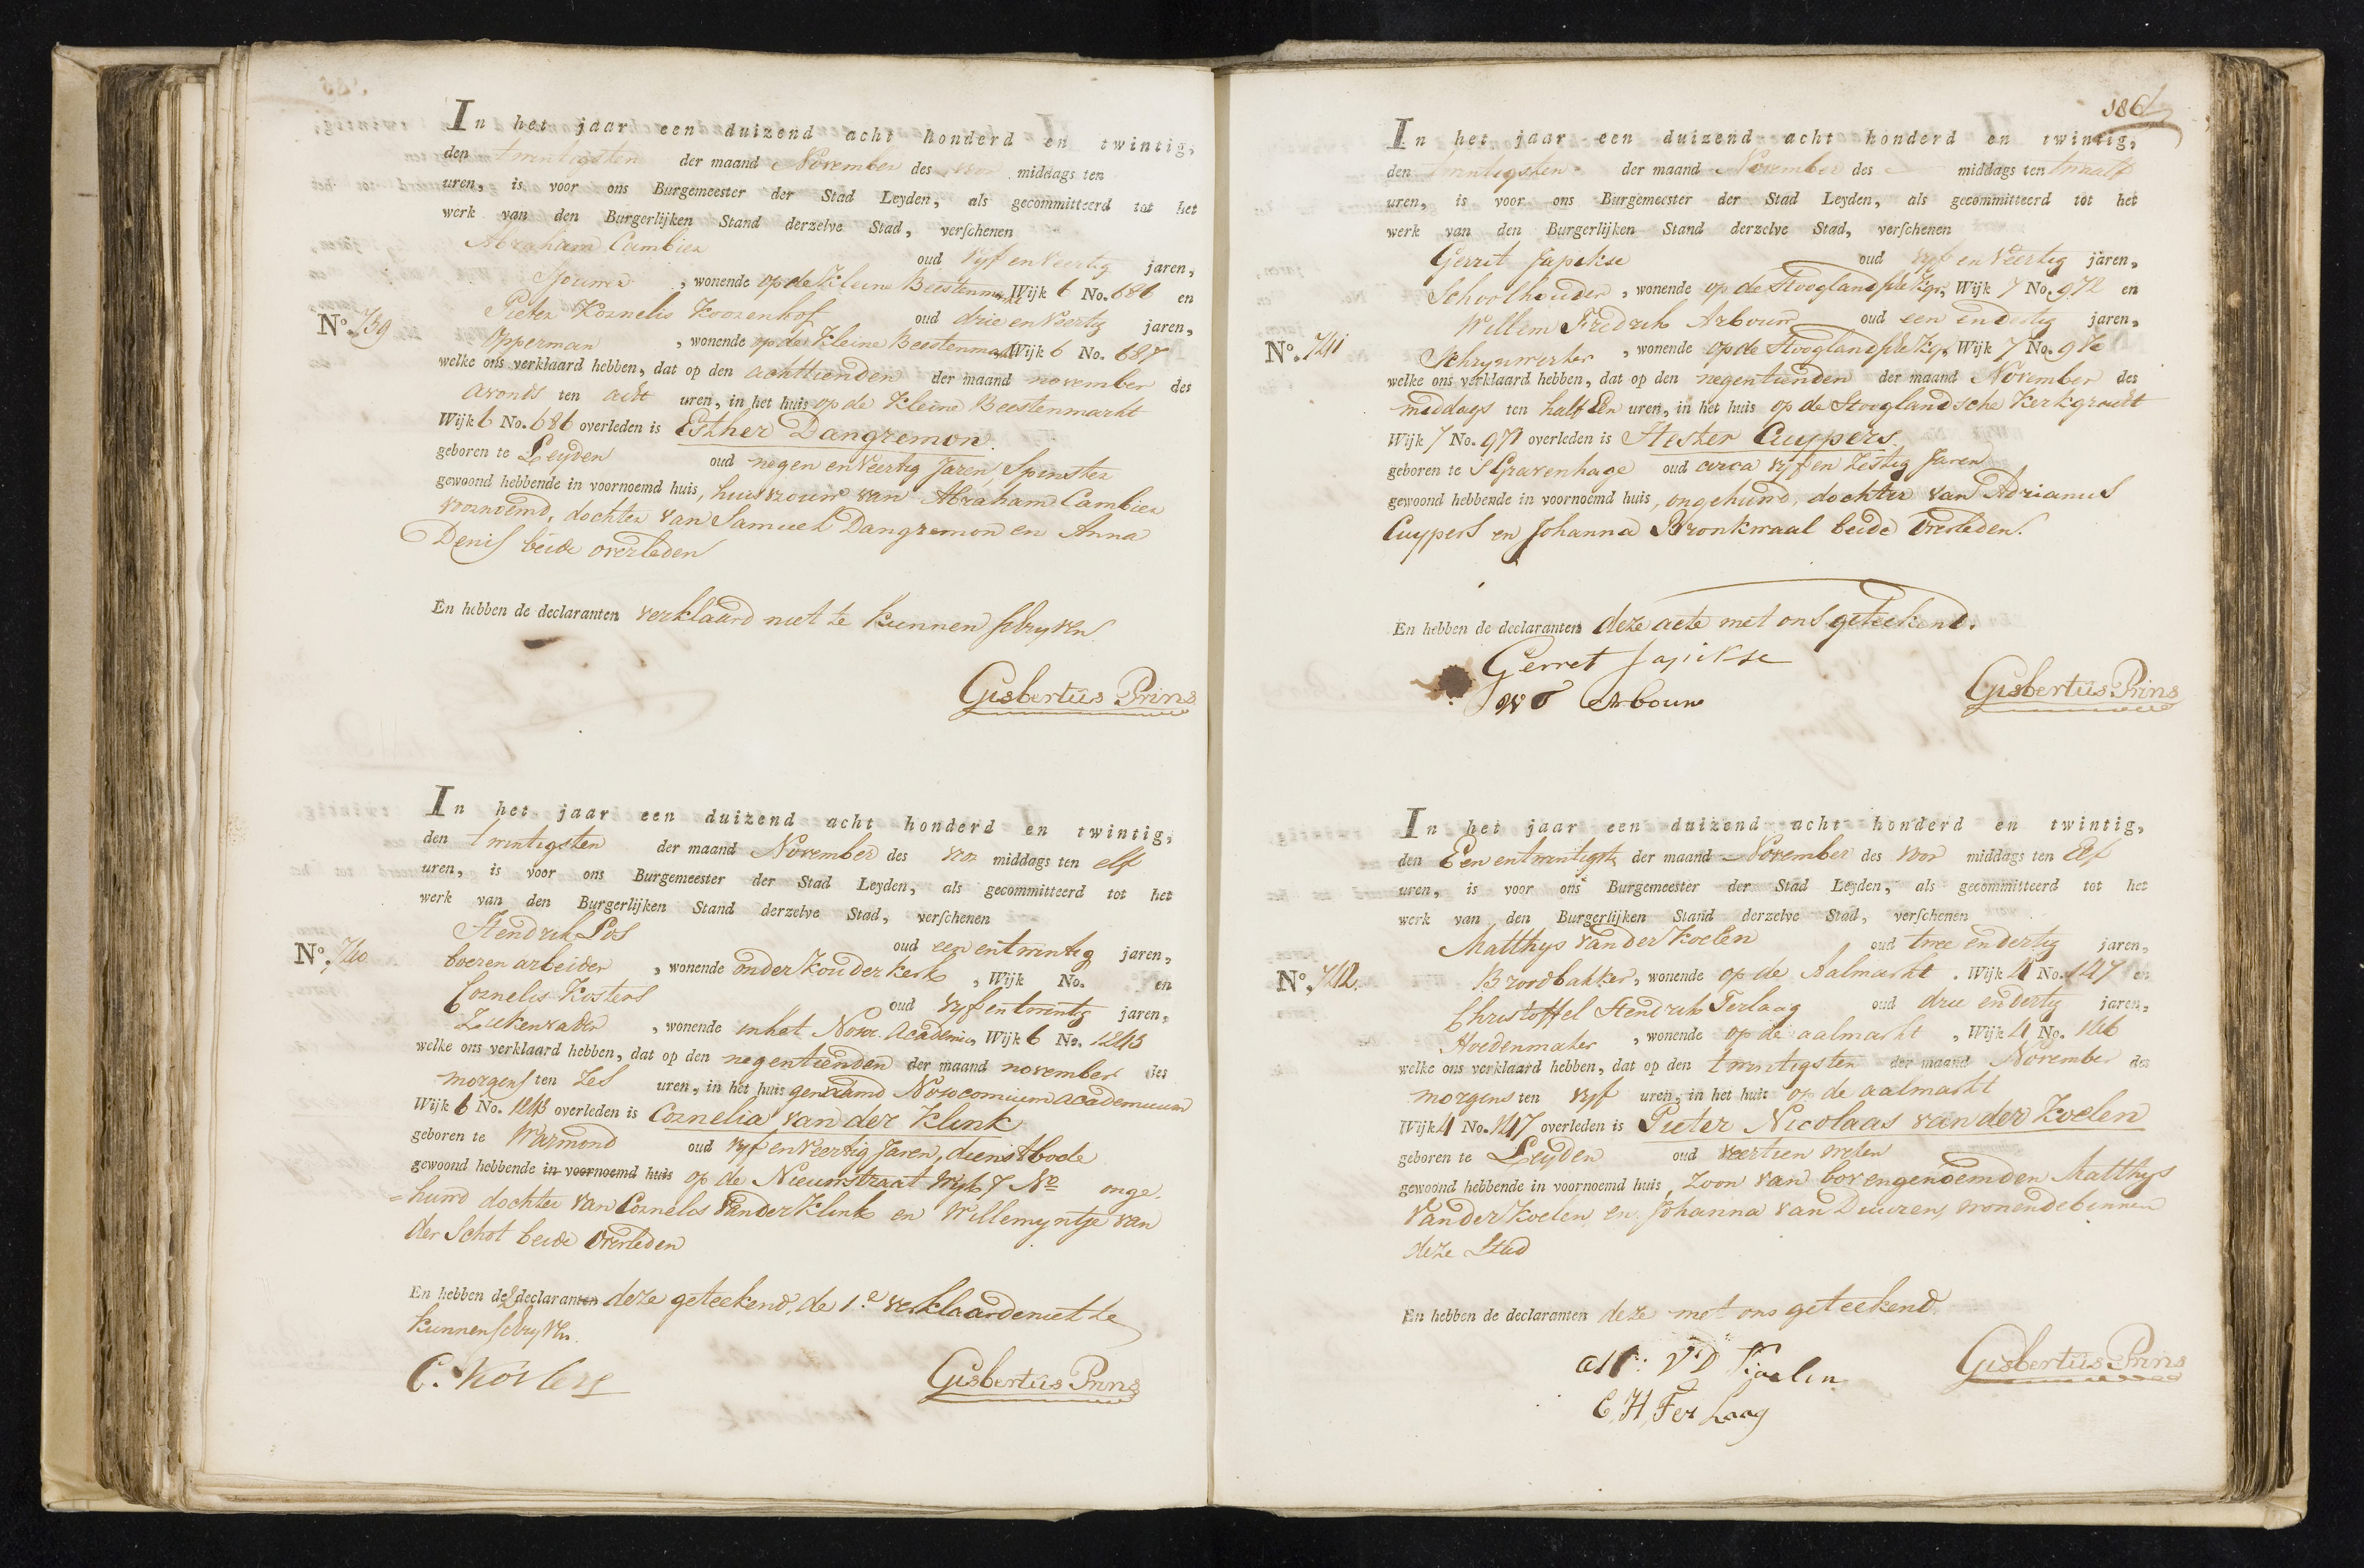 In het jaar een duizend acht honderd en twintig,
den twintigsten der maand November des voor middags ten
uren, is voor ons Burgemeester der Stad Leyden, als gecommitteerd tot het
werk van den Burgerlijken Stand derzelve Stad, verschenen
Abraham Cambier oud vyf en veertig jaren,
wonende op de Kleine Beestenmarkt Wijk 6 No. 686 en
No. 739
Pieter Kornelis Koozenhof oud drie en veertig jaren,
Opperman, wonende op de Kleine Beestenmarkt Wijk 6 No. 687
welke ons verklaard hebben, dat op den achttienden der maand november des
avonds ten acht uren, in het huis op de Kleine Beestenmarkt
Wijk 6 No. 686 overleden is Esther Dangremon
geboren te Leyden oud negen en veertig Jaren, Spinster
gewoond hebbende in voornoemd huis, huisvrouw van Abraham Cambier
voornoemd, dochter van Samuel Dangremon en Anna
Denis beide overleden
En hebben de declaranten verklaard niet te kunnen schryven
Gisbertus Prins
In het jaar een duizend acht honderd en twintig,
den twintigsten der maand November des voor middags ten elf
uren, is voor ons Burgemeester der Stad Leyden, als gecommitteerd tot het
werk van den Burgerlijken Stand derzelve Stad, verschenen
Hendrik Los oud een en twintig jaren,
No. 740
boeren arbeider, wonende onder Kouderkerk, Wijk No. en
Cornelis Kosters oud vyf en twintig jaren,
Ziekenvader, wonende in het Noso. Academie, Wijk 6 No. 1243
welke ons verklaard hebben, dat op den negentienden der maand november des
morgens ten zes uren, in het huis genaamd Nosocomium academicum
Wijk 6 No. 1243 overleden is Cornelia van der Klink
geboren te Warmond oud vyf en veertig Jaren, dienstbode
gewoond hebbende in voornoemd huis op de Nieuwstraat Wyk 7 No onge-
=huwd dochter van Cornelis van der Klink en Willemyntje van
der Schot beide overleden
En hebben de 2 declaranten deze geteekend, de 1.e verklaarde niet te
kunnen schryven.
C. Kosters
Gisbertus Prins
186
In het jaar een duizend acht honderd en twintig,
den twintigsten der maand November des middags ten twaalf
uren, is voor ons Burgemeester der Stad Leyden, als gecommitteerd tot het
werk van den Burgerlijken Stand derzelve Stad, verschenen
Gerrit Japikse oud vyf en veertig jaren,
Schoolhouder, wonende op de Hooglandsche Kgr, Wijk 7 No. 972 en
Willem Fredrik Arbouw oud een en dertig jaren,
No. 741
Schrynwerker, wonende op de Hooglandsche Kgr Wijk 7 No. 970
welke ons verklaard hebben, dat op den negentienden der maand November des
middags ten half Een uren, in het huis op de Hooglandsche Kerkgracht
Wijk 7 No. 971 overleden is Hester Cuypers
geboren te S Gravenhage oud circa vyf en Zestig Jaren
gewoond hebbende in voornoemd huis, ongehuwd, dochter van Adrianus
Cuypers en Johanna Bronkwaal beide Overleden.
En hebben de declaranten deze acte met ons geteekend.
Gerret Japikse
W F Arbouw
Gisbertus Prins
In het jaar een duizend acht honderd en twintig,
den Een en twintigste der maand November des voor middags ten Elf
uren, is voor ons Burgemeester der Stad Leyden, als gecommitteerd tot het
werk van den Burgerlijken Stand derzelve Stad, verschenen
Matthys van der Koelen oud twee en dertig jaren,
No. 742.
Broodbakker, wonende op de Aalmarkt. Wijk 4 No. 147 en
Christoffel Hendrik Terlaag oud drie en dertig jaren,
Hoedenmaker, wonende op de aalmarkt, Wijk 4 No. 146
welke ons verklaard hebben, dat op den twintigsten der maand November des
morgens ten vyf uren, in het huis op de aalmarkt
Wijk 4 No. 147 overleden is Pieter Nicolaas van der Koelen
geboren te Leyden oud veertien weken
gewoond hebbende in voornoemd huis, Zoon van bovengenoemden Matthys
van der Koelen, en Johanna van Duuren, wonende binnen
deze Stad
En hebben de declaranten deze met ons geteekend.
Mt: V D Koelen
C, H, Ter Laag
Gisbertus Prins